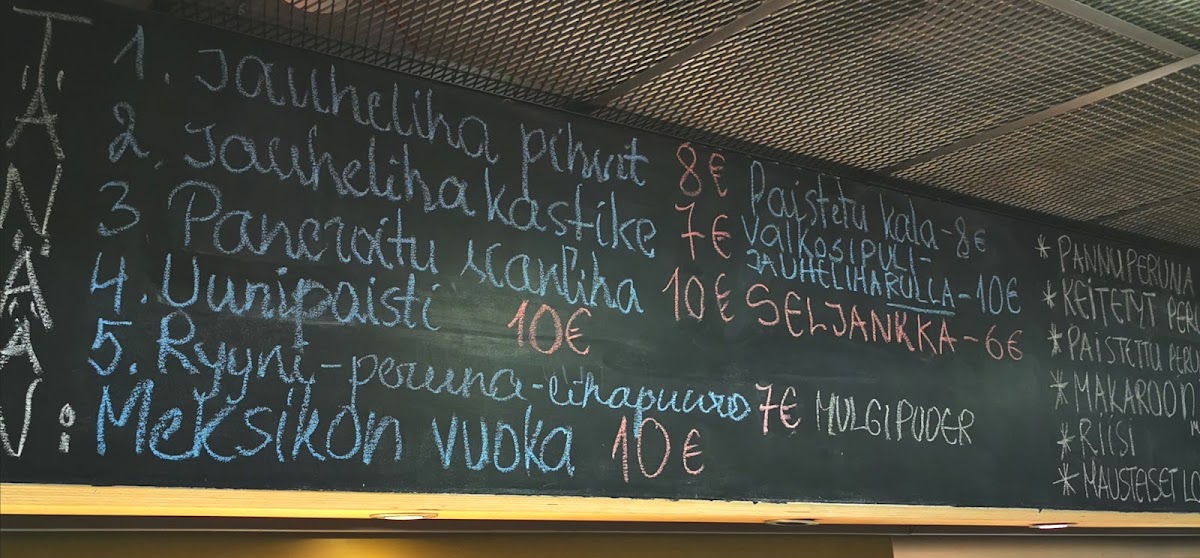 TÄNÄÄN:
1. Jauheliha pihvit 8€
2. Jauhelihakastike 7€
3. Paneroitu kanliha 10€
4. Uunipaisti 10€
5. Ryyni-peruna-lihapuuro 7€ MULGIPUDER
Meksikon vuoka 10€
Paistetu kala - 8€
VALKOSIPULI-
JAUHELIHARULLA - 10€
SELJANKKA - 6€
* PANNUPERUNA
* KEITETYT PER
* PAISTETTU PERU
* MAKAROON
* RIISI
* MAUSTEISET LO